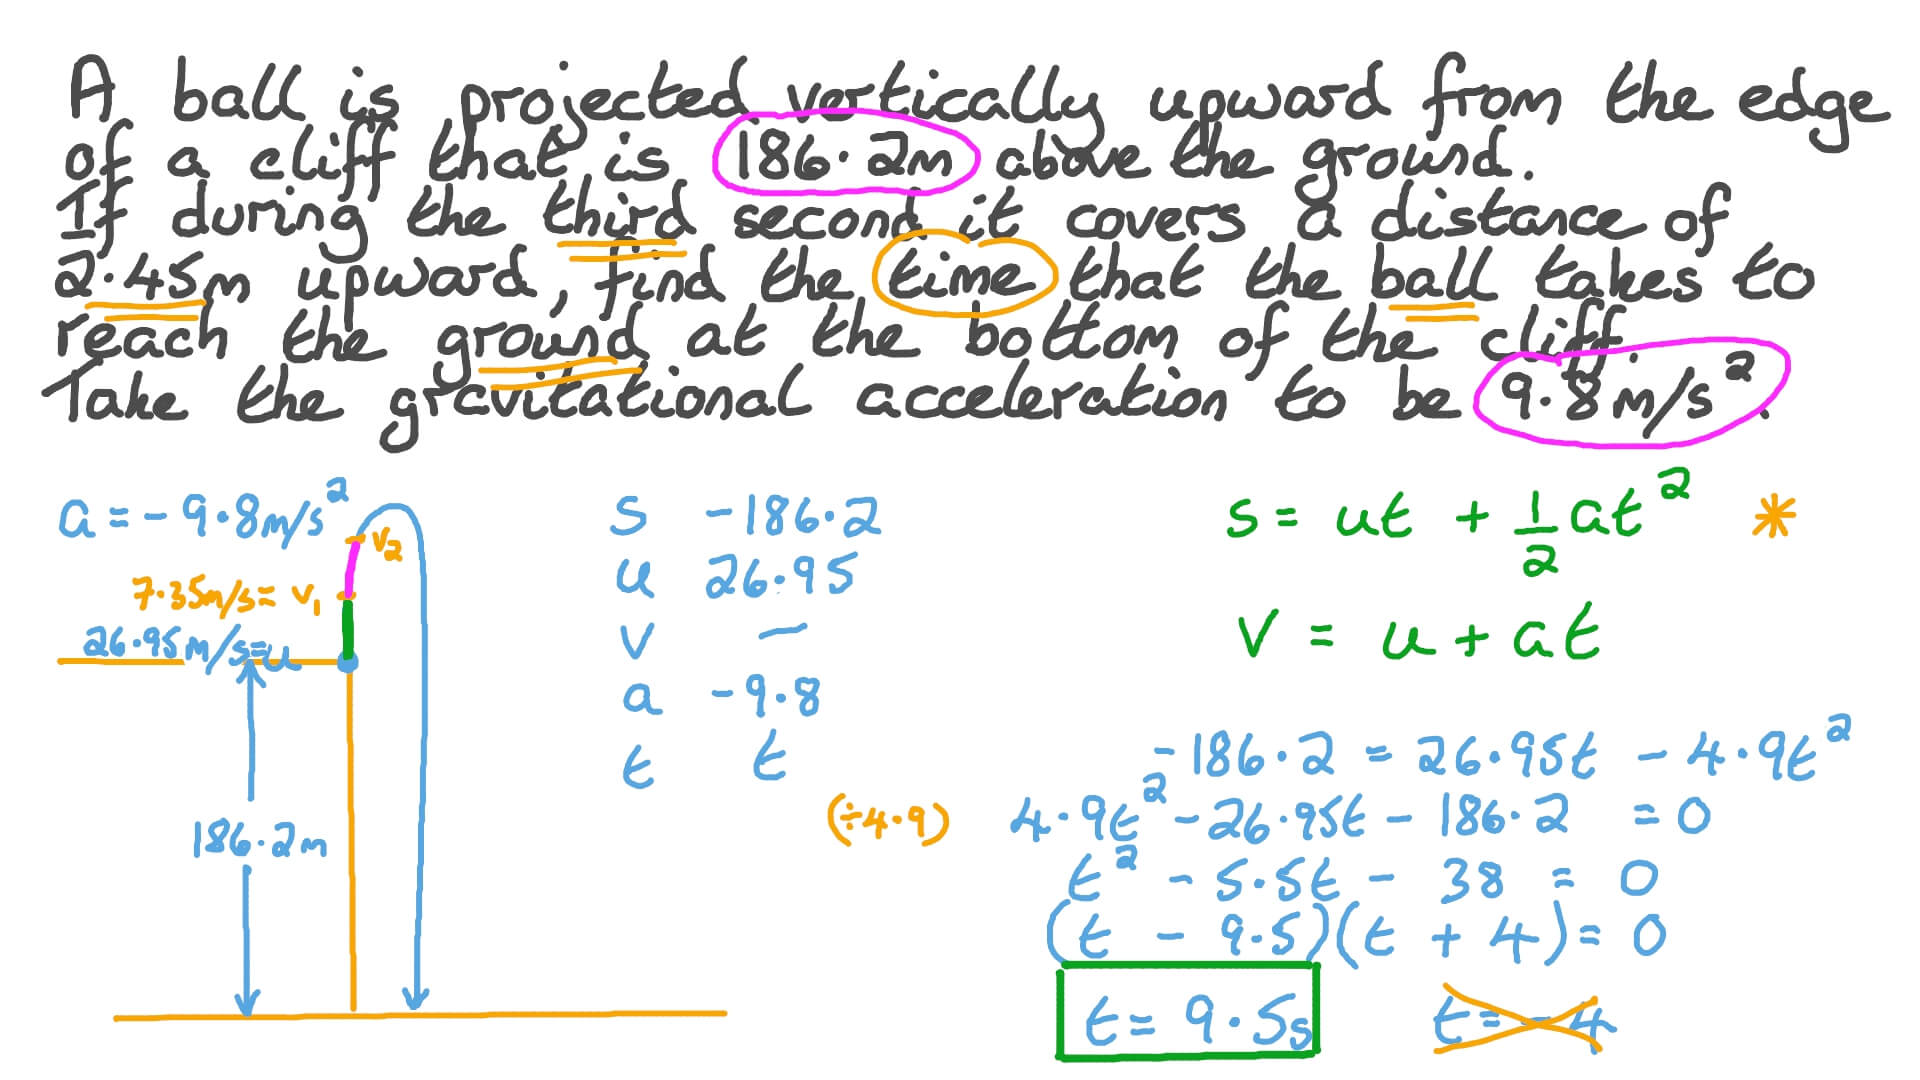 A ball is projected vertically upward from the edge
of a cliff that is 186.2m above the ground.
If during the third second it covers a distance of
2.45m upward, find the time that the ball takes to
reach the ground at the bottom of the cliff.
Take the gravitational acceleration to be 9.8m/s².
a = -9.8m/s²
v₂
7.35m/s = v₁
26.95m/s = u
186.2m
s -186.2
u 26.95
v —
a -9.8
t t
s = ut + 1/2 at² *
v = u + at
-186.2 = 26.95t - 4.9t²
(÷4.9) 4.9t² - 26.95t - 186.2 = 0
t² - 5.5t - 38 = 0
(t - 9.5)(t + 4) = 0
t = 9.5s t = -4